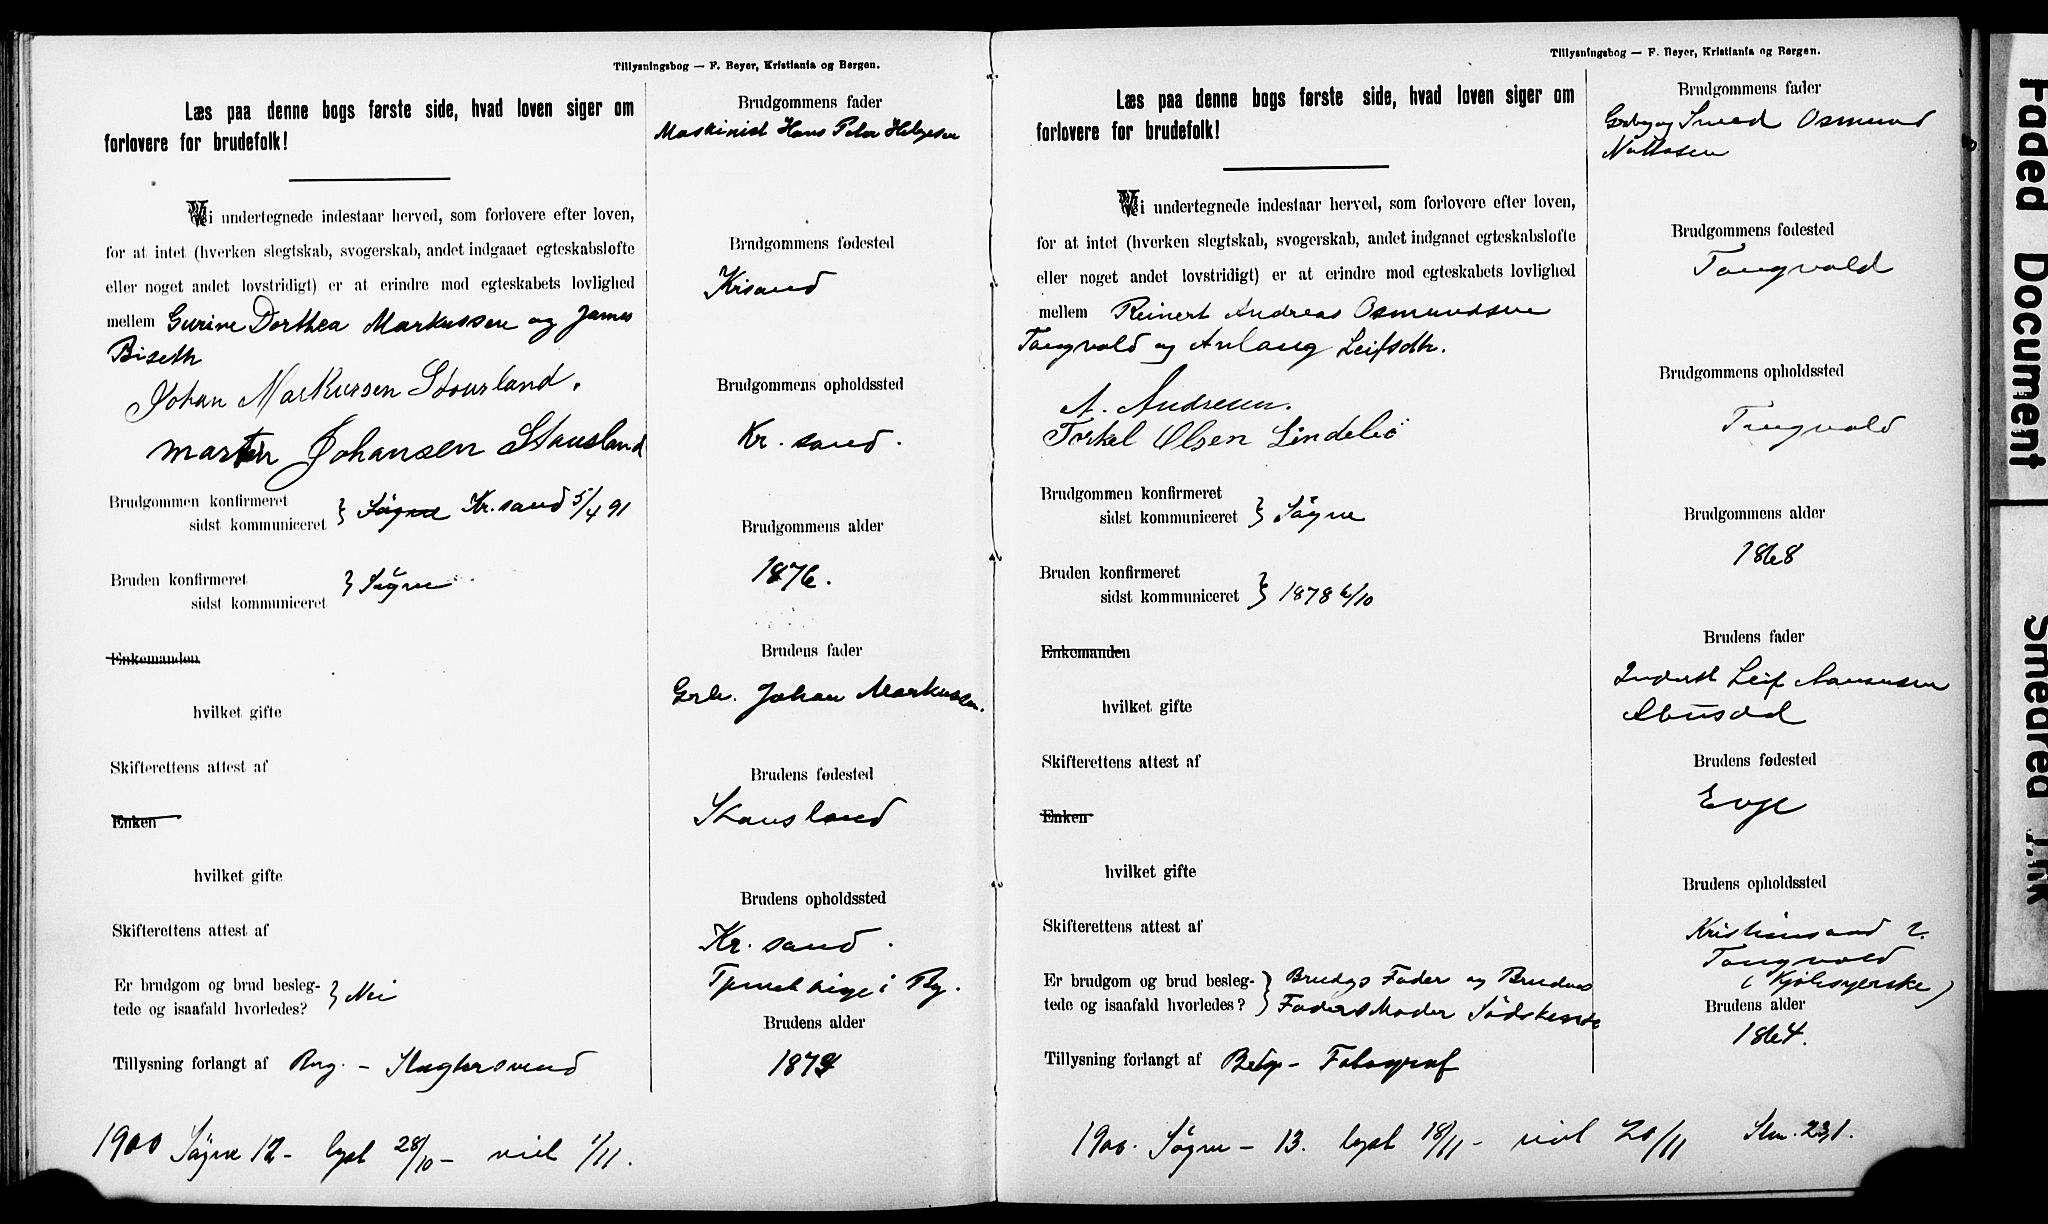 Tillysningsbog — F. Beyer, Kristiania og Bergen.
Læs paa denne bogs første side, hvad loven siger om
forlovere for brudefolk!
Vi undertegnede indestaar herved, som forlovere efter loven,
for at intet (hverken slegtskab, svogerskab, andet indgaaet egteskabsløfte
eller noget andet lovstridigt) er at erindre mod egteskabets lovlighed
mellem Gurine Dorthea Markussen og James
Biseth
Johan Markussen Stousland.
Martin Johansen Stausland
Brudgommen konfirmeret
sidst kommuniceret } Søgne Kr.sand 5/4 91
Bruden konfirmeret
sidst kommuniceret } Søgne
Enkemanden
hvilket gifte
Skifterettens attest af
Enken
hvilket gifte
Skifterettens attest af
Er brudgom og brud besleg-
tede og isaafald hvorledes? } Nei
Tillysning forlangt af Brg. - Slagtersvend
Brudgommens fader
Maskinist Hans Peter Helgesen
Brudgommens fødested
Krsand
Brudgommens opholdssted
Kr. sand.
Brudgommens alder
1876.
Brudens fader
Grbr. Johan Markussen.
Brudens fødested
Stausland
Brudens opholdssted
Kr. sand.
Tjenestepige i By.
Brudens alder
1874
1900 Søgne 12 - lyst 28/10 - viet 1/11.
Tillysningsbog — F. Beyer, Kristiania og Bergen.
Læs paa denne bogs første side, hvad loven siger om
forlovere for brudefolk!
Vi undertegnede indestaar herved, som forlovere efter loven,
for at intet (hverken slegtskab, svogerskab, andet indgaaet egteskabsløfte
eller noget andet lovstridigt) er at erindre mod egteskabets lovlighed
mellem Reinert Andreas Osmundsen
Tangvald og Anlaug Leifsdtr.
A. Andresen.
Torkel Olsen Lindelid
Brudgommen konfirmeret
sidst kommuniceret } Søgne
Bruden konfirmeret
sidst kommuniceret } 1878 6/10
Enkemanden
hvilket gifte
Skifterettens attest af
Enken
hvilket gifte
Skifterettens attest af
Er brudgom og brud besleg-
tede og isaafald hvorledes? } Brudgs Fader og Brudens
Faders Moder Sødskende
Tillysning forlangt af Brdg - Fotograf
Brudgommens fader
Grbr og Smed Osmund
Nottosen
Brudgommens fødested
Tangvald
Brudgommens opholdssted
Tangvald
Brudgommens alder
1868
Brudens fader
Inderst Leif Aanensen
Brudens fødested
Evje
Brudens opholdssted
Kristiansand
Tangvald
(Kjolesyerske)
Brudens alder
1864.
1900. Søgne - 13. lyst 18/11 - viet 20/11 Stm. 231.
Faded Document
Smeared Ink